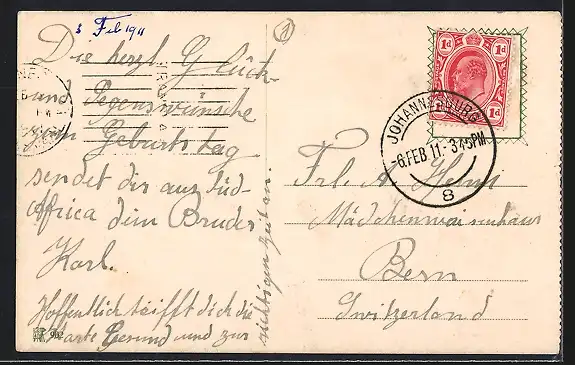 5 Feb 1911
1
Die herzl. Glück-
und Segenswünsche
zum Geburtstag
sendet dir aus Süd-
Africa dein Bruder
Karl.
Hoffentlich trifft dich die
Karte Gesund und zur
richtigen Zeit an.
1d 1d
1d
JOHANNESBURG
-6.FEB.11-3.45PM
8
Frl. A.
Mädchenwaisenhaus
Bern
Switzerland